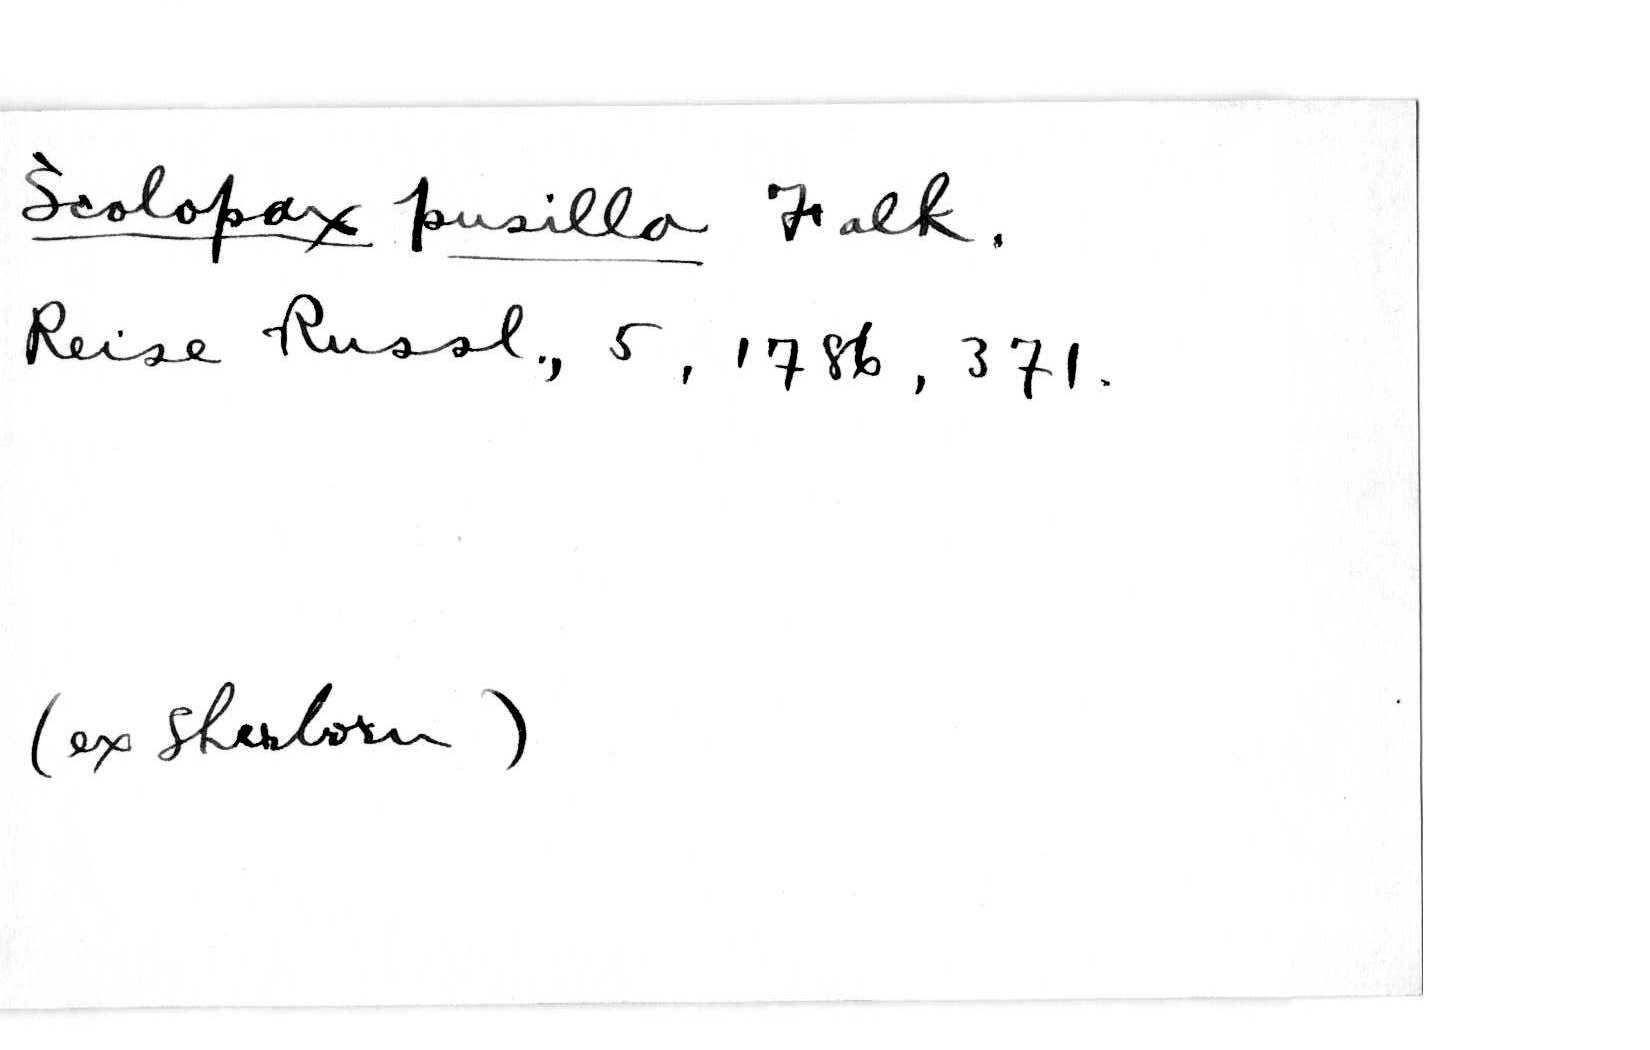 Scolopax pusilla Falk.
Reise Russl., 5, 1786, 371.
(ex Sherborn)